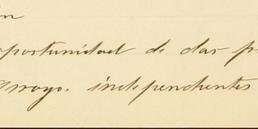 oportunidad de dar p
Arroyo. independentes